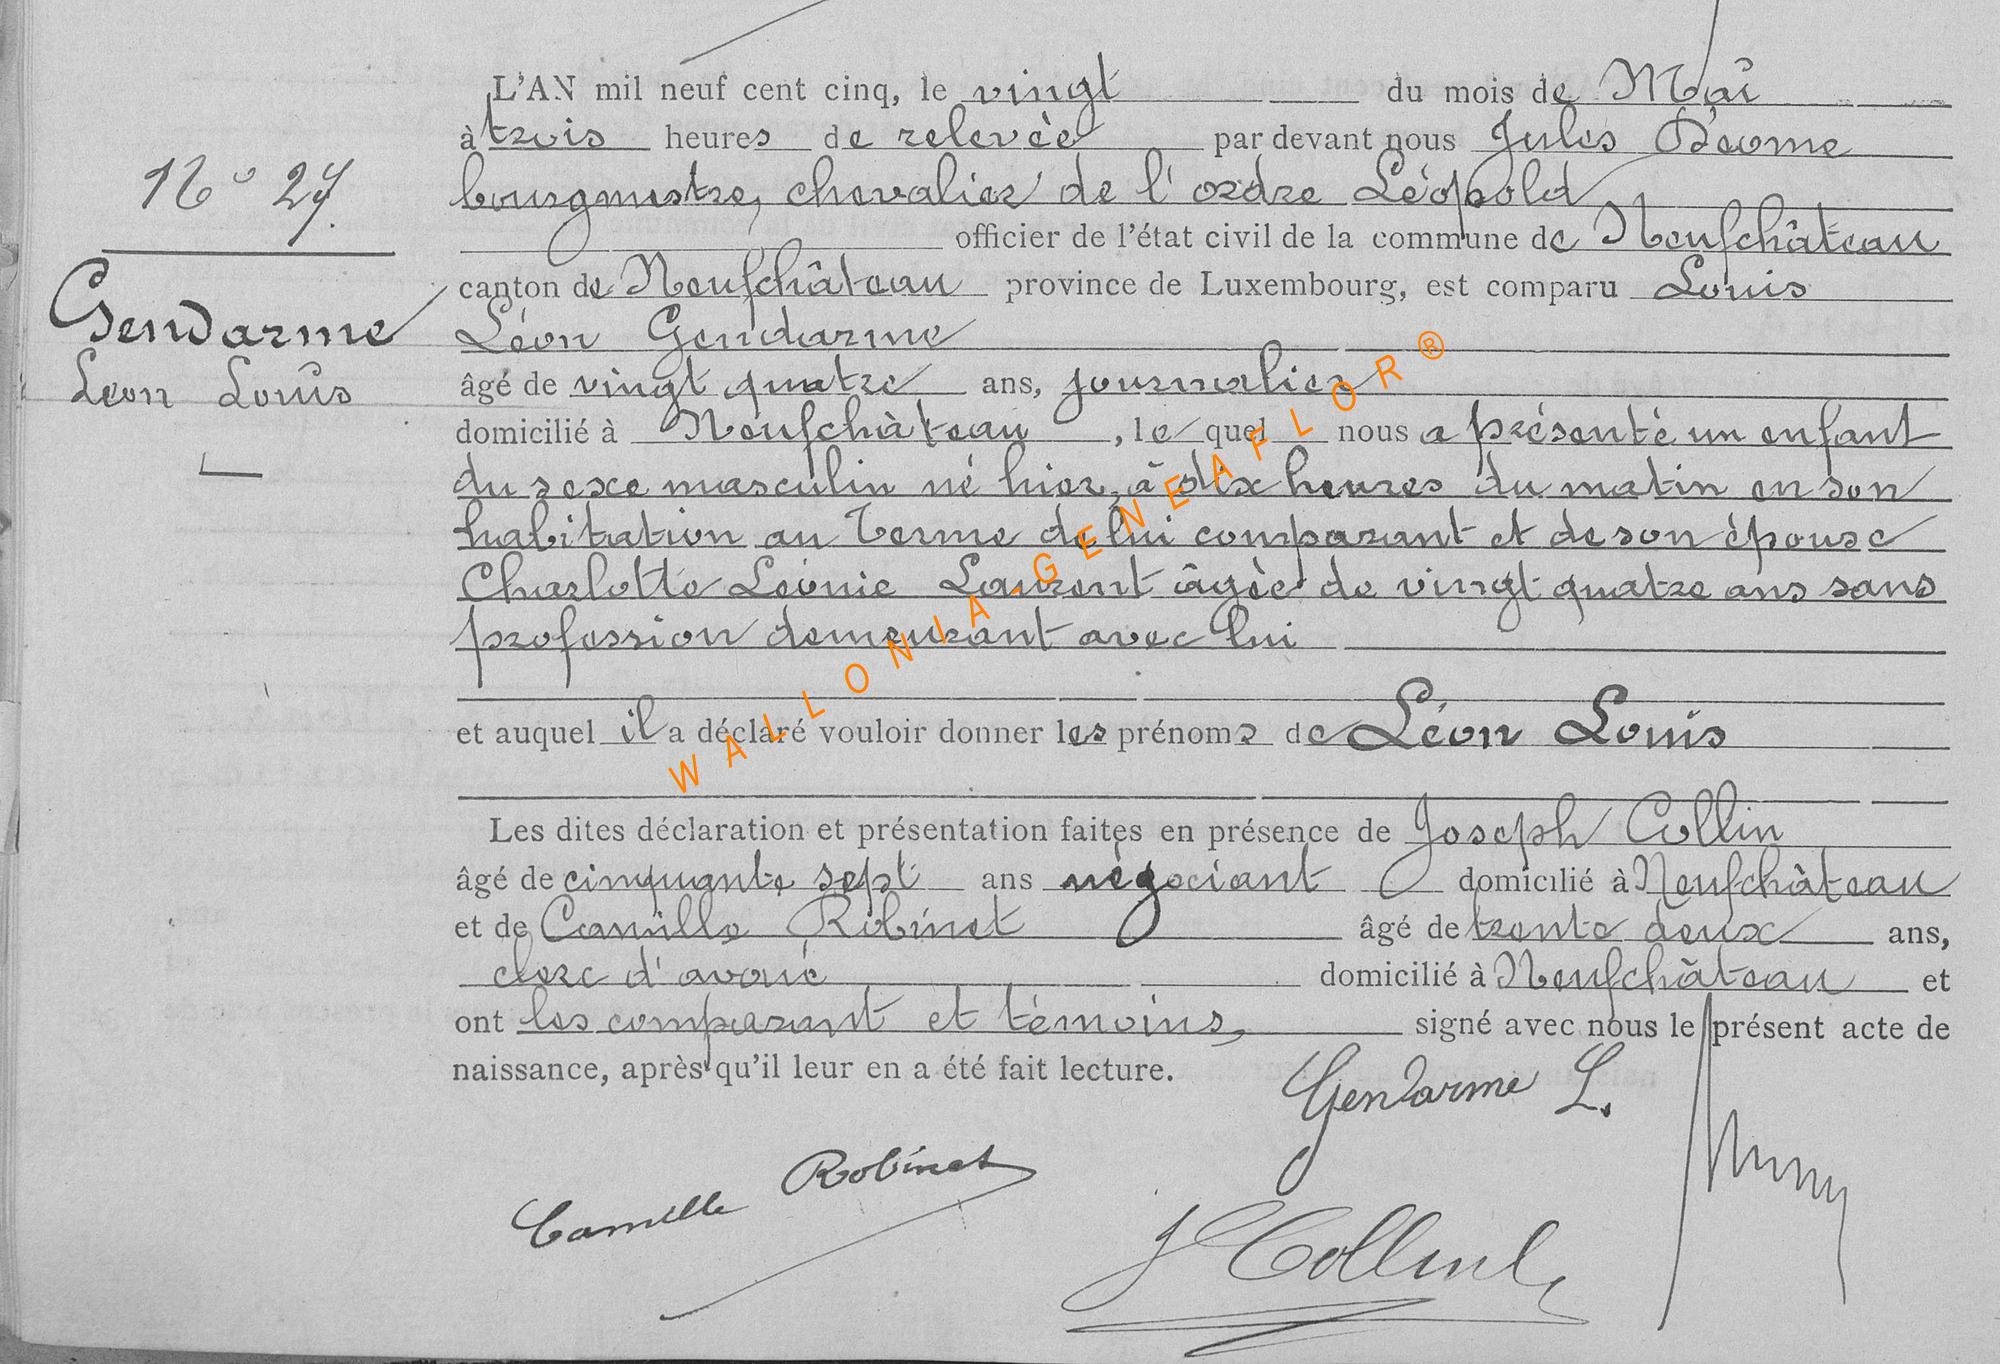 L'AN mil neuf cent cinq, le vingt du mois de Mai
à trois heures de relevée par devant nous Jules
bourgmestre, chevalier de l'ordre Léopold
officier de l'état civil de la commune de Neufchâteau
canton de Neufchâteau province de Luxembourg, est comparu Louis
Léon Gendarme
âgé de vingt quatre ans, journalier
domicilié à Neufchâteau, le quel nous a présenté un enfant
du sexe masculin né hier, à dix heures du matin en son
habitation au Terme de lui comparant et de son épouse
Charlotte Léonie Laurent âgée de vingt quatre ans sans
profession demeurant avec lui
et auquel il a déclaré vouloir donner les prénoms de Léon Louis
Les dites déclaration et présentation faites en présence de Joseph Collin
âgé de cinquante sept ans négociant domicilié à Neufchâteau
et de Camille Robinet âgé de trente deux ans,
clerc d'avoué domicilié à Neufchâteau et
ont les comparant et témoins, signé avec nous le présent acte de
naissance, après qu'il leur en a été fait lecture.
No 27.
Gendarme
Leon Louis
Gendarme L.
Camille Robinet
J Collin
WALLONIA-GENEAFLOR®